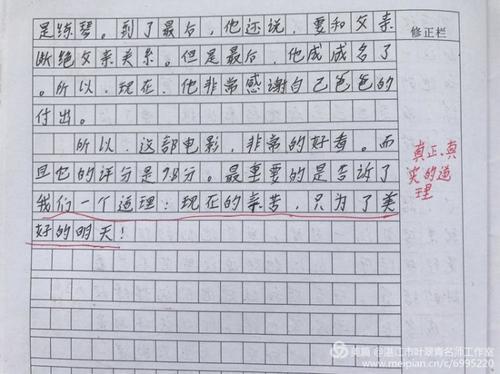 是练琴。到了最后，他还说，要和父亲
断绝父亲关系。但是最后，他成成名了
。所以，现在，他非常感谢自己爸爸的
付出。
所以，这部电影，非常的好看。而
且它的评分是7.8分。最重要的是告诉了
我们一个道理：现在的辛苦，只为了美
好的明天！
修正栏
真正、真
实的道
理
美篇@湛江市叶翠青名师工作室
www.meipian.cn/c/6995220